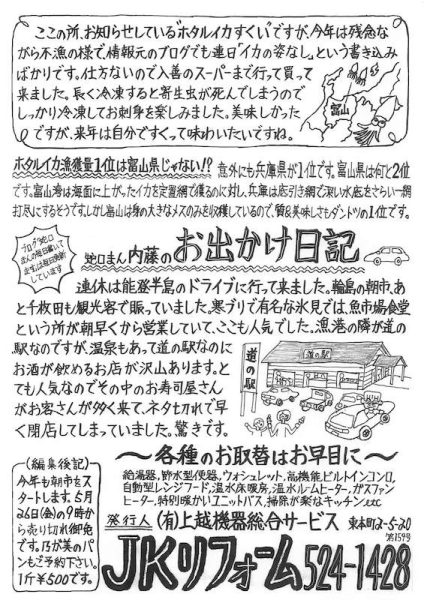 ここの所、お知らせしている"ホタルイカすくい"ですが、今年は残念な
がら不漁の様で、情報元のブログでも連日「イカの姿なし。」という書き込み
ばかりです。仕方ないので入善のスーパーまで行って買って
来ました。長く冷凍すると寄生虫が死んでしまうので
しっかり冷凍してお刺身を楽しみました。美味しかった
ですが、来年は自分ですくって味わいたいですね。
富山
ホタルイカ漁獲量1位は富山県じゃない!?
意外にも兵庫県が1位です。富山県は何と2位
です。富山湾は海面に上がったイカを定置網で獲るのに対し、兵庫は底引き網で深い水底をさらい一網
打尽にするそうです。しかし富山は身の大きなメスのみを収穫しているので、質&美味しさもダントツの1位です。
ブログ"蛇口
まんの毎日磨いて
ますは"毎日更新
しています
蛇口まん内藤のお出かけ日記
連休は能登半島のドライブに行って来ました。輪島の朝市、あ
と千枚田も観光客で賑っていました。寒ブリで有名な氷見では、魚市場食堂
という所が朝早くから営業していて、ここも人気でした。漁港の隣が道の
駅なのですが、温泉もあって道の駅なのに
お酒が飲めるお店が沢山あります。と
ても人気なのでその中のお寿司屋さん
がお客さんが多く来て、ネタ切れで早
く閉店してしまっていました。驚きです。
道の駅
道の駅
〜各種のお取替はお早目に〜
給湯器、節水型便器、ウォシュレット、高機能ビルトインコンロ、
自動型レンジフード、温水床暖房、温水ルームヒーター、ガスファン
ヒーター、特別暖かいユニットバス、掃除が楽なキッチンetc
(編集後記)
今年も朝市をス
タートします。5月
26日(金)の9時か
ら売り切れ御免
です。乃が美のパ
ンもご予約下さい。
1斤¥500です。
発行人 (有)上越機器総合サービス 東本町2-5-20
第159号
JKリフォーム 524-1428